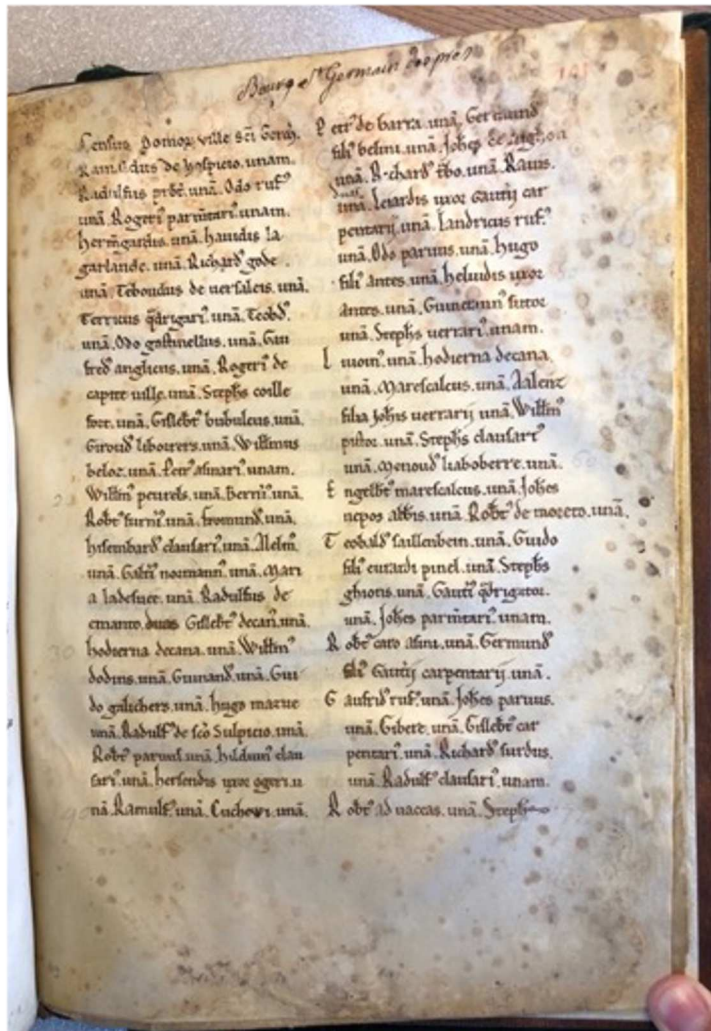 Bourg St Germain des prés
Census domoꝝ ville Sci Germ.
Ranulfus de hospicio. unam.
Radulfus prbr̃. unã. Odo ruf⁹
unã. Rogeri⁹ parmtari⁹ unam.
hermgardis. unã. hauidis la
garlande. unã. Richard⁹ gode
unã. Teboudus de uersaleis. unã.
Terricus q̃drigari⁹. unã. Teobd⁹.
unã. Odo gastinellus. unã. Gau
fred⁹ anglicus. unã. Rogeri⁹ de
capite uille. unã. Stephs coille
fort. unã. Gislebt⁹ bubulcus. unã.
Giroud⁹ unã. Willmus
beloc. unã. Petr⁹ asinari⁹ unam.
Willm⁹ peurels. unã. unã.
Robt⁹ furni⁹. unã. fromund⁹. unã.
hysembard⁹ clausari⁹. unã. Alelm⁹.
unã. Galti⁹ normann⁹. unã. Mari
a unã. Radulfus de
cmanto. duas Gislebt⁹ decan⁹. unã.
hodierna decana. unã. Willm⁹
dodins. unã. Guinand⁹. unã. Gui
do galichers. unã. hugo marue
unã. Radulf⁹ de sco Sulpicio. unã.
Robt⁹ paruus. unã. hilduin⁹ clau
sari⁹. unã. hersendis uxor ogeri. u
nã. Ranulf⁹. unã. Cuchowi. unã.
Petr⁹ de barra. unã. Germund⁹
fili⁹ belini. unã. Johes de
unã. Richard⁹ unã. Raus.
unã. Leiardis uxor Gautij car
pentarij. unã. Landricus ruf⁹.
unã. Odo paruus. unã. hugo
fili⁹ antes. unã. heluidis uxor
antes. unã. sutor
unã. Stephs uerrari⁹. unam.
unã. hodierna decana
unã. Marescalcus. unã. Aalenz
filia Johis uerrarij unã. Willm⁹
pistor. unã. Stephs clausari⁹
unã. Menoud⁹ liaboberre. unã.
Engelbt⁹ marescalcus. unã. Johes
nepos abbis. unã. Robt⁹ de moreto. unã.
Teobald⁹ saillenbein. unã. Guido
fili⁹ eurardi pinel. unã. Stephs
ghions. unã. Gauti⁹ q̃drigator.
unã. Johes parmtari⁹. unam.
Robt⁹ caro asini. unã. Germund⁹
fili⁹ Gautij carpentarij. unã.
Gaufrid⁹ ruf⁹. unã. Johes paruus.
unã. Gibert. unã. Gislebt⁹ car
pentari⁹. unã. Richard⁹ surdus.
unã. Radulf⁹ clausari⁹. unam.
Robt⁹ ad uaccas. unã. Stephs